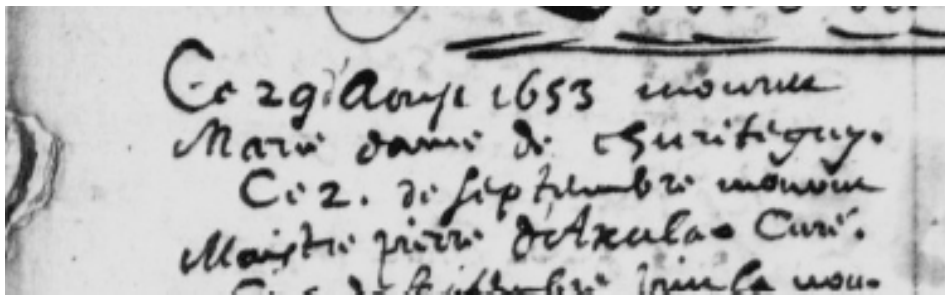 Ce 29. Aoust 1653 mourut
Marie dame de churiteguy.
Ce 2. de septembre mourut
Maistre pierre d'Axular Curé.